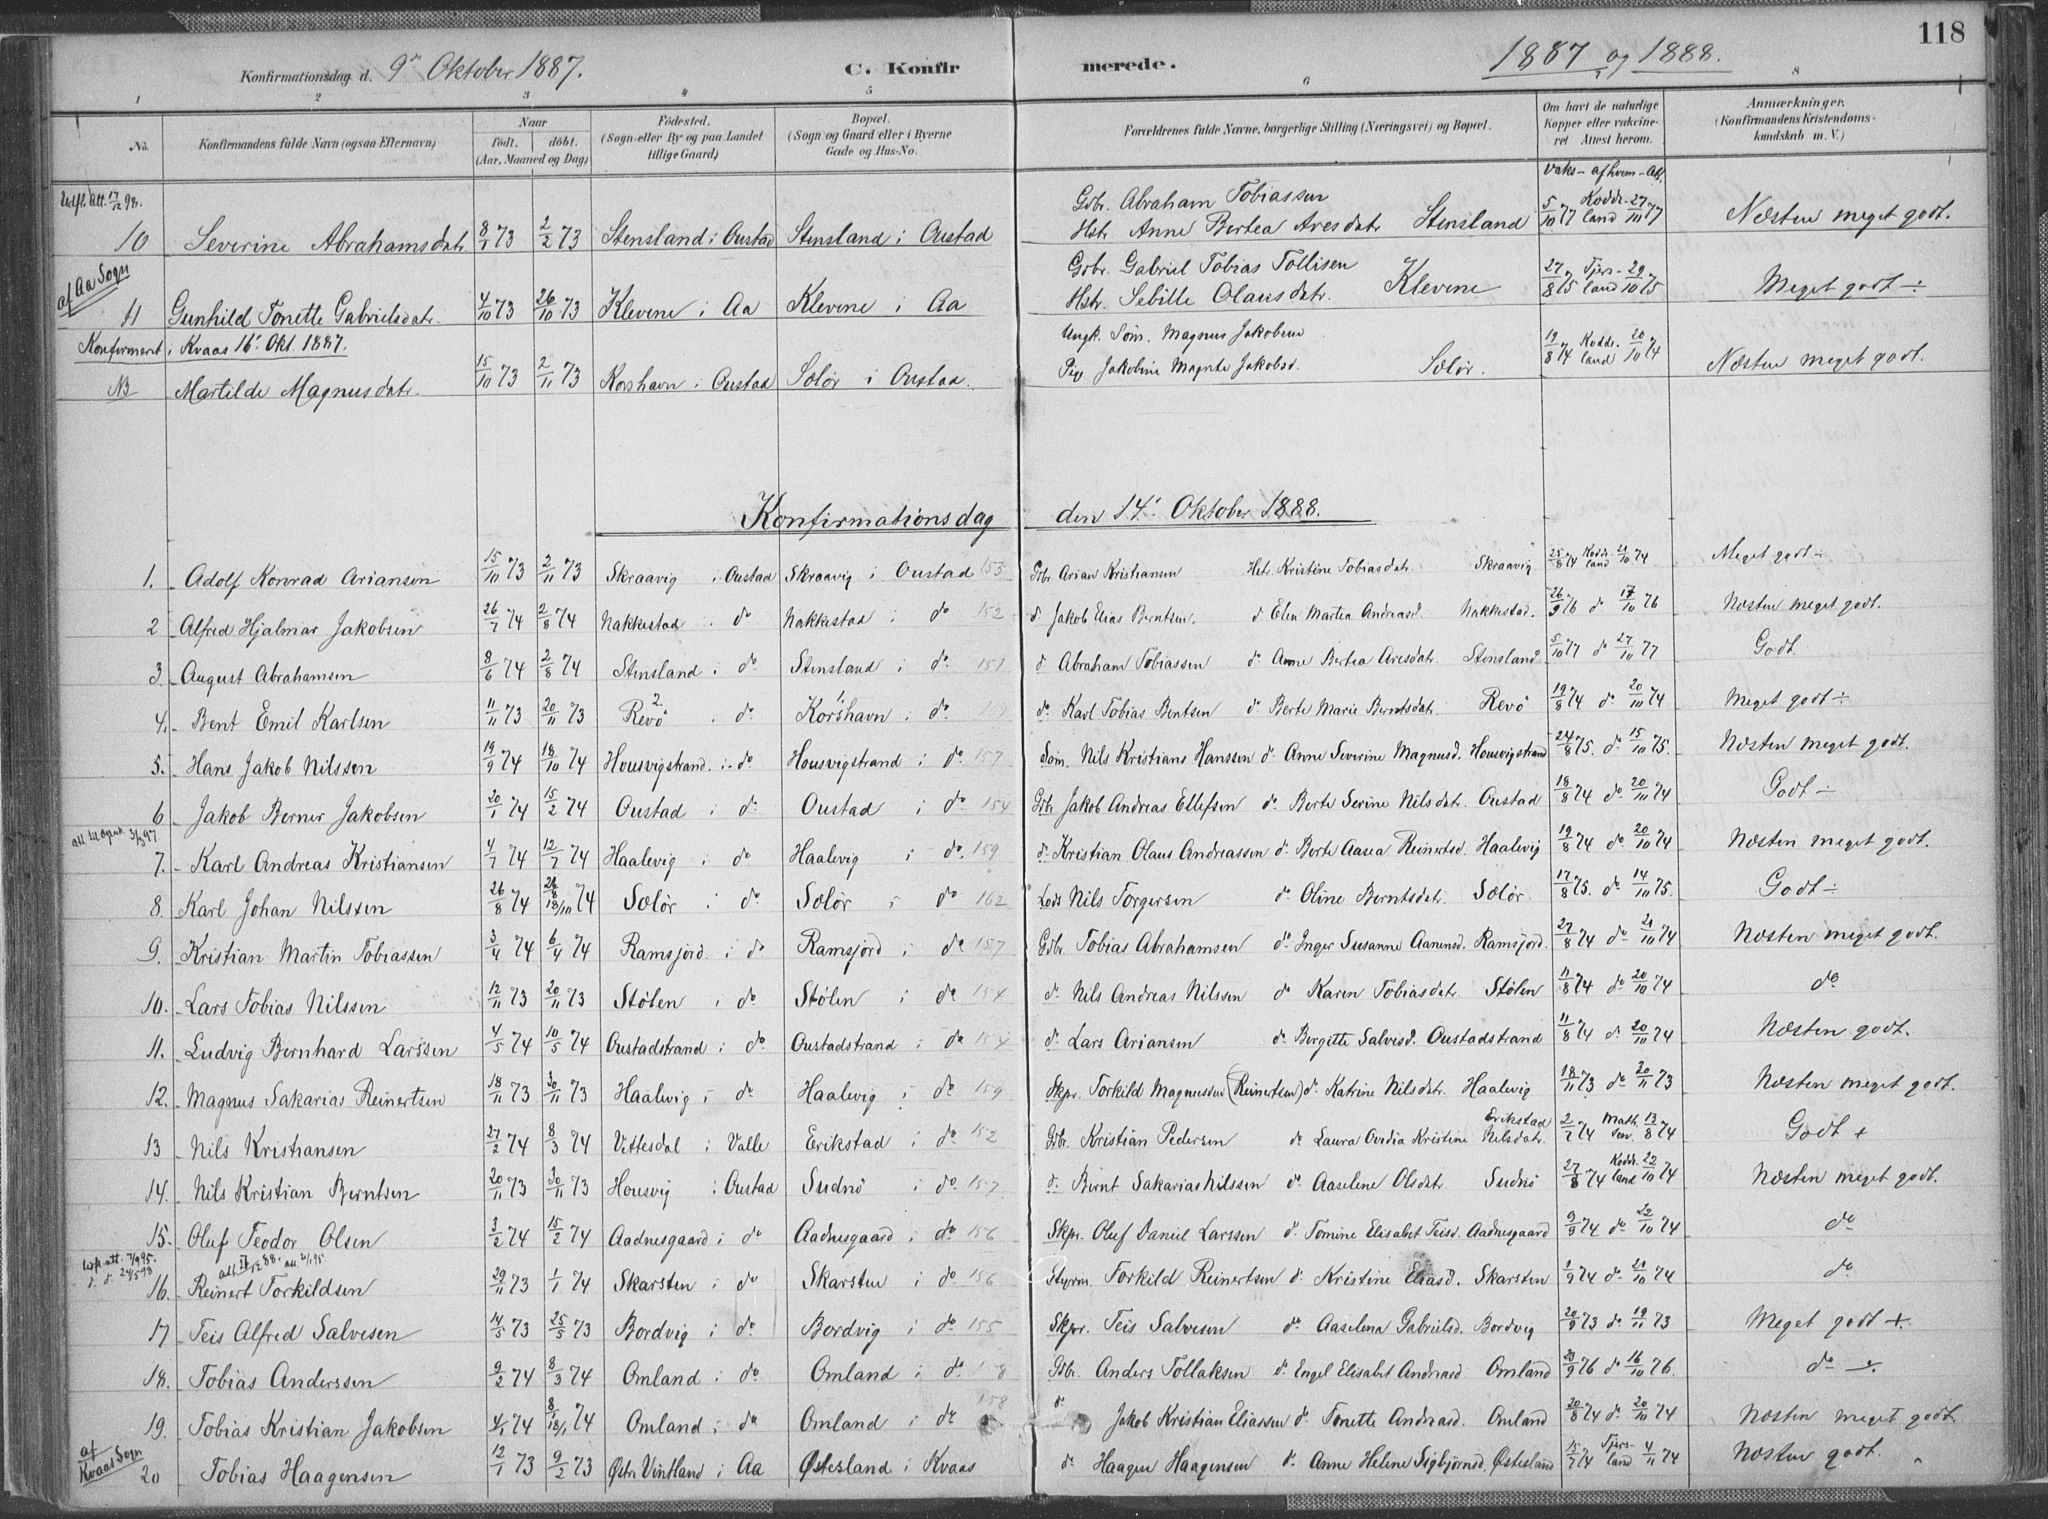 118
Konfirmationsdag d. 9de Oktober 1887. C. Konfirmerede. 1887 og 1888.
1 2 3 4 5 6 8
No. Konfirmandens fulde Navn (ogsaa Efternavn) Naar født. døbt. (Aar, Maaned og Dag) Fødested. (Sogn eller By og paa Landet tillige Gaard) Bopæl. (Sogn og Gaard eller i Byerne Gade og Hus-No. Forældrenes fulde Navne, borgerlige Stilling (Næringsvei) og Bopæl. Om havt de naturlige Kopper eller vakcineret Attest herom. Anmærkninger. (Konfirmandens Kristendomskundskab m. V.)
Vaks - af hvem - Att.
Udfl. Att. 17/12 98.
10 Severine Abrahamsdatr. 8/1 73 2/2 73 Stensland i Oustad Stensland i Oustad Gbr. Abraham Tobiassen Hstr. Anne Bertea Aresdatr. Stensland 5/10 77 Koddeland 27/10 77 Næsten meget godt.
af Aa Sogn
11 Gunhild Tonette Gabrielsdatr. 4/10 73 26/10 73 Klevene i Aa Klevene i Aa Gbr. Gabriel Tobias Tollisen Hstr. Sebille Olausdatr. Klevene 27/8 75 Tjersland 29/10 75 Meget godt ÷
Konfirmeret i Kvaas 16de Okt. 1887.
NB Martilde Magnusdatr. 15/10 73 2/11 73 Korshavn i Oustad Sælør i Oustad. Ungk. Søm. Magnus Jakobsen Pige Jakobine Magnete Jakobsd. Sælør. 19/8 74 Koddeland 20/10 74 Næsten meget godt.
Konfirmationsdag den 14de Oktober 1888.
1. Adolf Konrad Ariansen 15/10 73 2/11 73 Skraavig i Oustad Skraavig i Oustad 153 Gbr. Arian Kristiansen Hstr. Kristine Tobiasdatr. Skraavig 25/8 74 Koddeland 21/10 74 Meget godt ÷
2 Alfred Hjalmar Jakobsen 26/7 74 2/8 74 Nakkestad i do Nakkestad i do 152 do Jakob Elias Berntsen. do Elen Martea Andreasd. Nakkestad. 26/9 76 do 17/10 76 Næsten meget godt.
3. August Abrahamsen 8/6 74 2/8 74 Stensland i do Stensland i do 151 do Abraham Tobiassen do Anne Bertea Aresdatr. Stensland 5/10 77 do 27/10 77 Godt
4. Bent Emil Karlsen 11/11 73 20/11 73 Revø 2. i do Korshavn 1 i do do Karl Tobias Bentsen do Berte Marie Berntsdatr. Revø 19/8 74 do 20/10 74 Meget godt ÷
5. Hans Jakob Nilssen 19/9 74 18/10 74 Housvigstrand i do Housvigstrand i do 157 Søm. Nils Kristians Hanssen do Anne Severine Magnusd. Housvigstrand 24/8 75. do 15/10 75. Næsten meget godt.
6 Jakob Berner Jakobsen 20/1 74 15/2 74 Oustad i do Oustad i do 154 Gbr. Jakob Andreas Ellefsen do Berte Serine Nilsdatr. Oustad 18/8 74 do 20/10 74 Godt ÷
7. Karl Andreas Kristiansen 4/7 74 12/7 74 Haalevig i do Haalevig i do 159 do Kristian Olaus Andreassen do Berte Aasea Reinertsd. Haalevig 19/8 74 do 20/10 74 Næsten meget godt.
8. Karl Johan Nilssen 26/8 74 26/8 18/10 74 Sælør i do Sælør i do 162 Lods Nils Torgersen do Oline Berntsdatr. Sælør. 17/8 75. do 14/10 75. Godt ÷
9. Kristian Martin Tobiassen 3/4 74 6/4 74 Ramsjord i do Ramsjord i do 157 Gbr. Tobias Abrahamsen do Inger Susanne Aanensd. Ramsjord. 27/8 74 do 21/10 74 Næsten meget godt.
10. Lars Tobias Nilssen 12/11 73 20/11 73 Stølen i do Stølen i do 154 do Nils Andreas Nilssen do Karen Tobiasdatr. Stølen 11/8 74 do 20/10 74 do
11. Ludvig Bernhard Larssen 4/5 74 10/5 74 Oustadstrand i do Oustadstrand i do 154 do Lars Ariansen do Bergitte Salvesd. Oustadstrand 11/8 74 do 20/10 74 Næsten godt.
12. Magnus Sakarias Reinertsen 18/11 73 30/11 73 Haalevig i do Haalevig i do 159 Skpr. Torkild Magnussen (Reinertsen) do Katrine Nilsdatr. Haalevig 18/11 73 do 20/11 73 Næsten meget godt.
13 Nils Kristiansen 27/2 74 8/3 74 Vittesdal i Valle Erikstad i do 152 Gbr. Kristian Pedersen do Laura Ovidia Kristine Nilsdatr. Erikstad 2/7 74 13/8 74 Godt +
14. Nils Kristian Berntsen 20/11 73 30/11 73 Housvig i Oustad Sudnø i do 157 do Bernt Sakarias Nilssen do Aaselene Olsdatr. Sudnø 27/8 74 Koddeland 22/10 74 Næsten meget godt.
15. Oluf Teodor Olsen 3/2 74 15/2 74 Aadnesgaard i do Aadnesgaard i do 156 Skpr. Oluf Daniel Larssen do Tomine Elisabet Teisd. Aadnesgaard 9/9 74 do 22/10 74 do
16. Reinert Torkildsen 29/11 73 1/1 74 Skarsten i do Skarsten i do 156 Styrm. Torkild Reinertsen do Kristine Eliasd. Skarsten 1/9 74 do 21/10 74 do
17 Teis Alfred Salvesen 14/5 73 25/5 73 Bordvig i do Bordvig i do 155 Skpr. Teis Salvesen do Aaselena Gabrielsd. Bordvig 20/9 73 do 19/11 73 Meget godt +.
18. Tobias Anderssen 9/2 74 8/3 74 Omland i do Omland i do 158 Gbr. Anders Tollaksen do Engel Elisabet Andreasd Omland 20/9 76 do 16/10 76. do ÷
19. Tobias Kristian Jakobsen 4/1 74 8/ 18/1 74 Omland i do Omland i do 158 do Jakob Kristian Eliassen do Tonette Andreasd. Omland 20/8 74 do 20/10 74 Næsten meget godt.
af Kvaas Sogn
20 Tobias Haagensen 12/1 73 9/2 73 Østre Vintland i Aa Østesland i Kvaas do Haagen Haagensen do Anne Helene Sigbjørnsd. Østesland 15/7 74 Tjersland 4/11 74 Næsten godt.